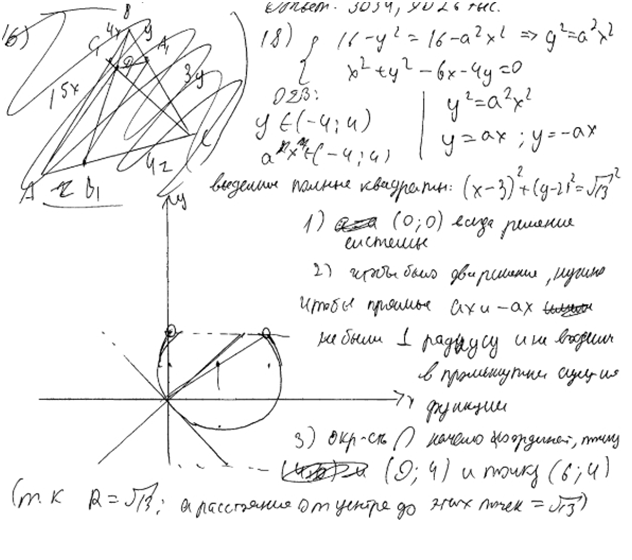 Ответ: 3054, 9026 тыс.
16)
B
4x
y
C₁
A₁
15x
3y
C
A
12
B₁
4z
18) { 16-y² = 16-a²x² => y²=a²x²
x²+y²-6x-4y=0
ОДЗ:
y ∈ (-4; 4)
y²=a²x²
y=ax ; y=-ax
выделим полные квадраты: (x-3)²+(y-2)²=√13²
y
1) (0;0) всегда решение
системы
2) чтобы было два решения, нужно
чтобы прямые ax и -ax
не были ⊥ радиусу и не входили
в промежутки
функции
x
3) Окр-сть ∩ начало координат, точку
(0; 4) и точку (6; 4)
(т.к R=√13; а расстояние от центра до этих точек = √13)